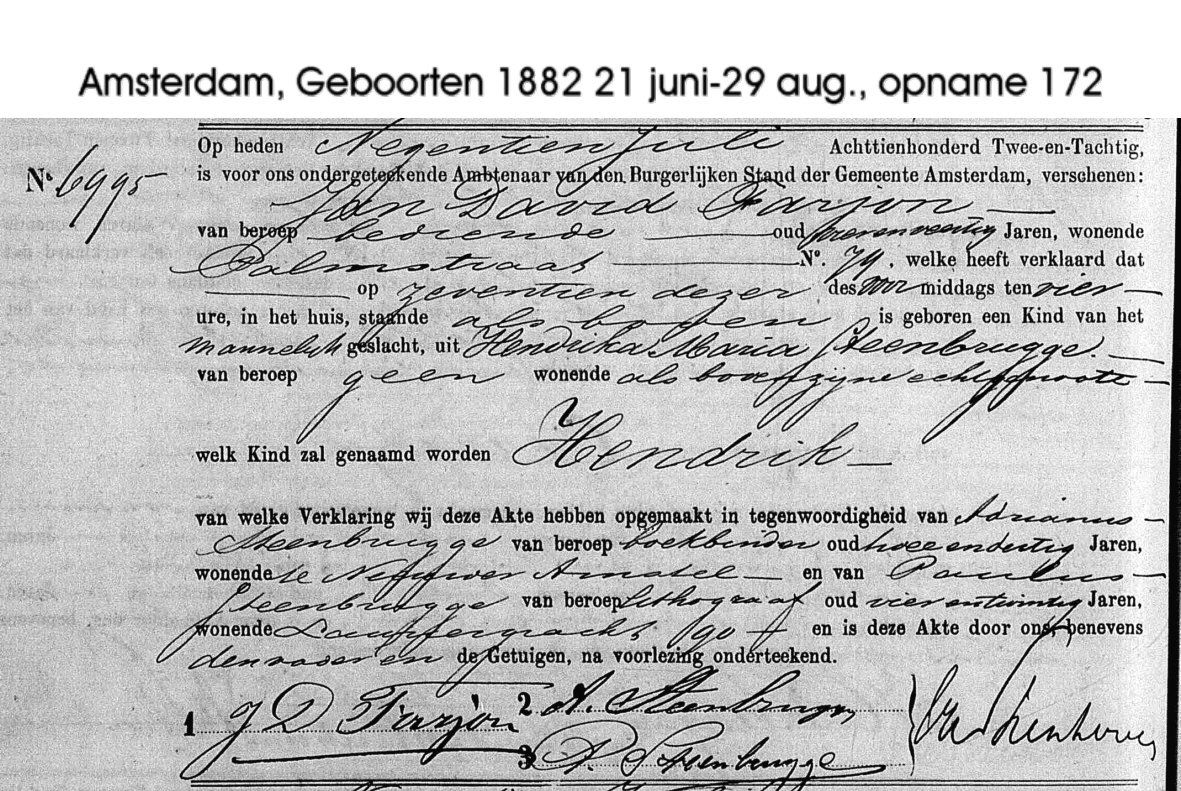 Amsterdam, Geboorten 1882 21 juni-29 aug., opname 172
Op heden Negentien Juli Achttienhonderd Twee-en-Tachtig,
No. 6995 is voor ons ondergeteekende Ambtenaar van den Burgerlijken Stand der Gemeente Amsterdam, verschenen:
Jan David Farjon
van beroep bediende oud Jaren, wonende
Palmstraat No. 79, welke heeft verklaard dat
op zeventien dezer des voor middags ten vier
ure, in het huis, staande als boven is geboren een Kind van het
mannelijk geslacht, uit Hendrika Maria Steenbrugge.
van beroep geen wonende als boven zijne echtgenoote
welk Kind zal genaamd worden Hendrik
van welke Verklaring wij deze Akte hebben opgemaakt in tegenwoordigheid van Adrianus
Steenbrugge van beroep boekbinder oud twee en dertig Jaren,
wonende te Nieuwer Amstel en van Paulus
Steenbrugge van beroep Lithograaf oud vier en twintig Jaren,
wonende 90 en is deze Akte door ons, benevens
den vader en de Getuigen, na voorlezing onderteekend.
1 J D Farjon 2 A. Steenbrugge
3 P. Steenbrugge